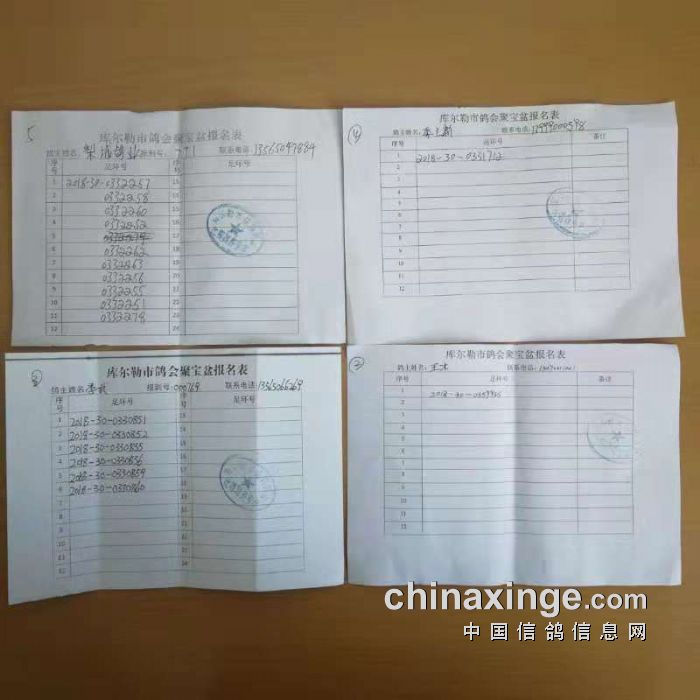 5
库尔勒市鸽会聚宝盆报名表
鸽主姓名: 梨城鸽业 报到号: 771 联系电话: 13565047884
序号 足环号 序号 足环号
1 2018-30-0332257 13
2 0332258 14
3 0332260 15
4 0332252 16
5 17
6 0332262 18
7 0332263 19
8 0332256 20
9 0332255 21
10 0332251 22
11 0332278 23
12 24
④
库尔勒市鸽会聚宝盆报名表
鸽主姓名: 联系电话:
序号 足环号 备注
1 2018-30-0331712
2
3
4
5
6
7
8
9
10
11
12
②
库尔勒市鸽会聚宝盆报名表
鸽主姓名: 报到号: 000769 联系电话:
序号 足环号 序号 足环号
1 2018-30-0330851 13
2 2018-30-0330852 14
3 2018-30-0330855 15
4 2018-30-0330856 16
5 2018-30-0330859 17
6 2018-30-0330860 18
7 19
8 20
9 21
10 22
11 23
12 24
③
库尔勒市鸽会聚宝盆报名表
鸽主姓名: 联系电话:
序号 足环号 备注
1
2 2018-30-
3
4
5
6
7
8
9
10
11
12
chinaxinge.com
中国信鸽信息网